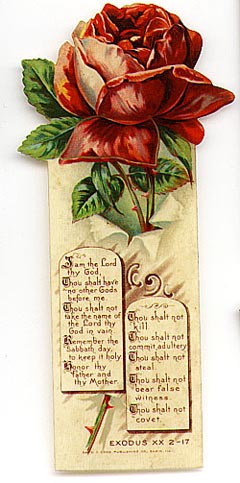 I am the Lord
thy God,
Thou shalt have
no other Gods
before me.
Thou shalt not
take the name of
the Lord thy
God in vain.
Remember the
Sabbath day,
to keep it holy
Honor thy
Father and
thy Mother.
Thou shalt not
kill.
Thou shalt not
commit adultery
Thou shalt not
steal.
Thou shalt not
bear false
witness.
Thou shalt not
covet.
EXODUS XX 2-17
COOK PUBLISHING CO. ELGIN, ILL.